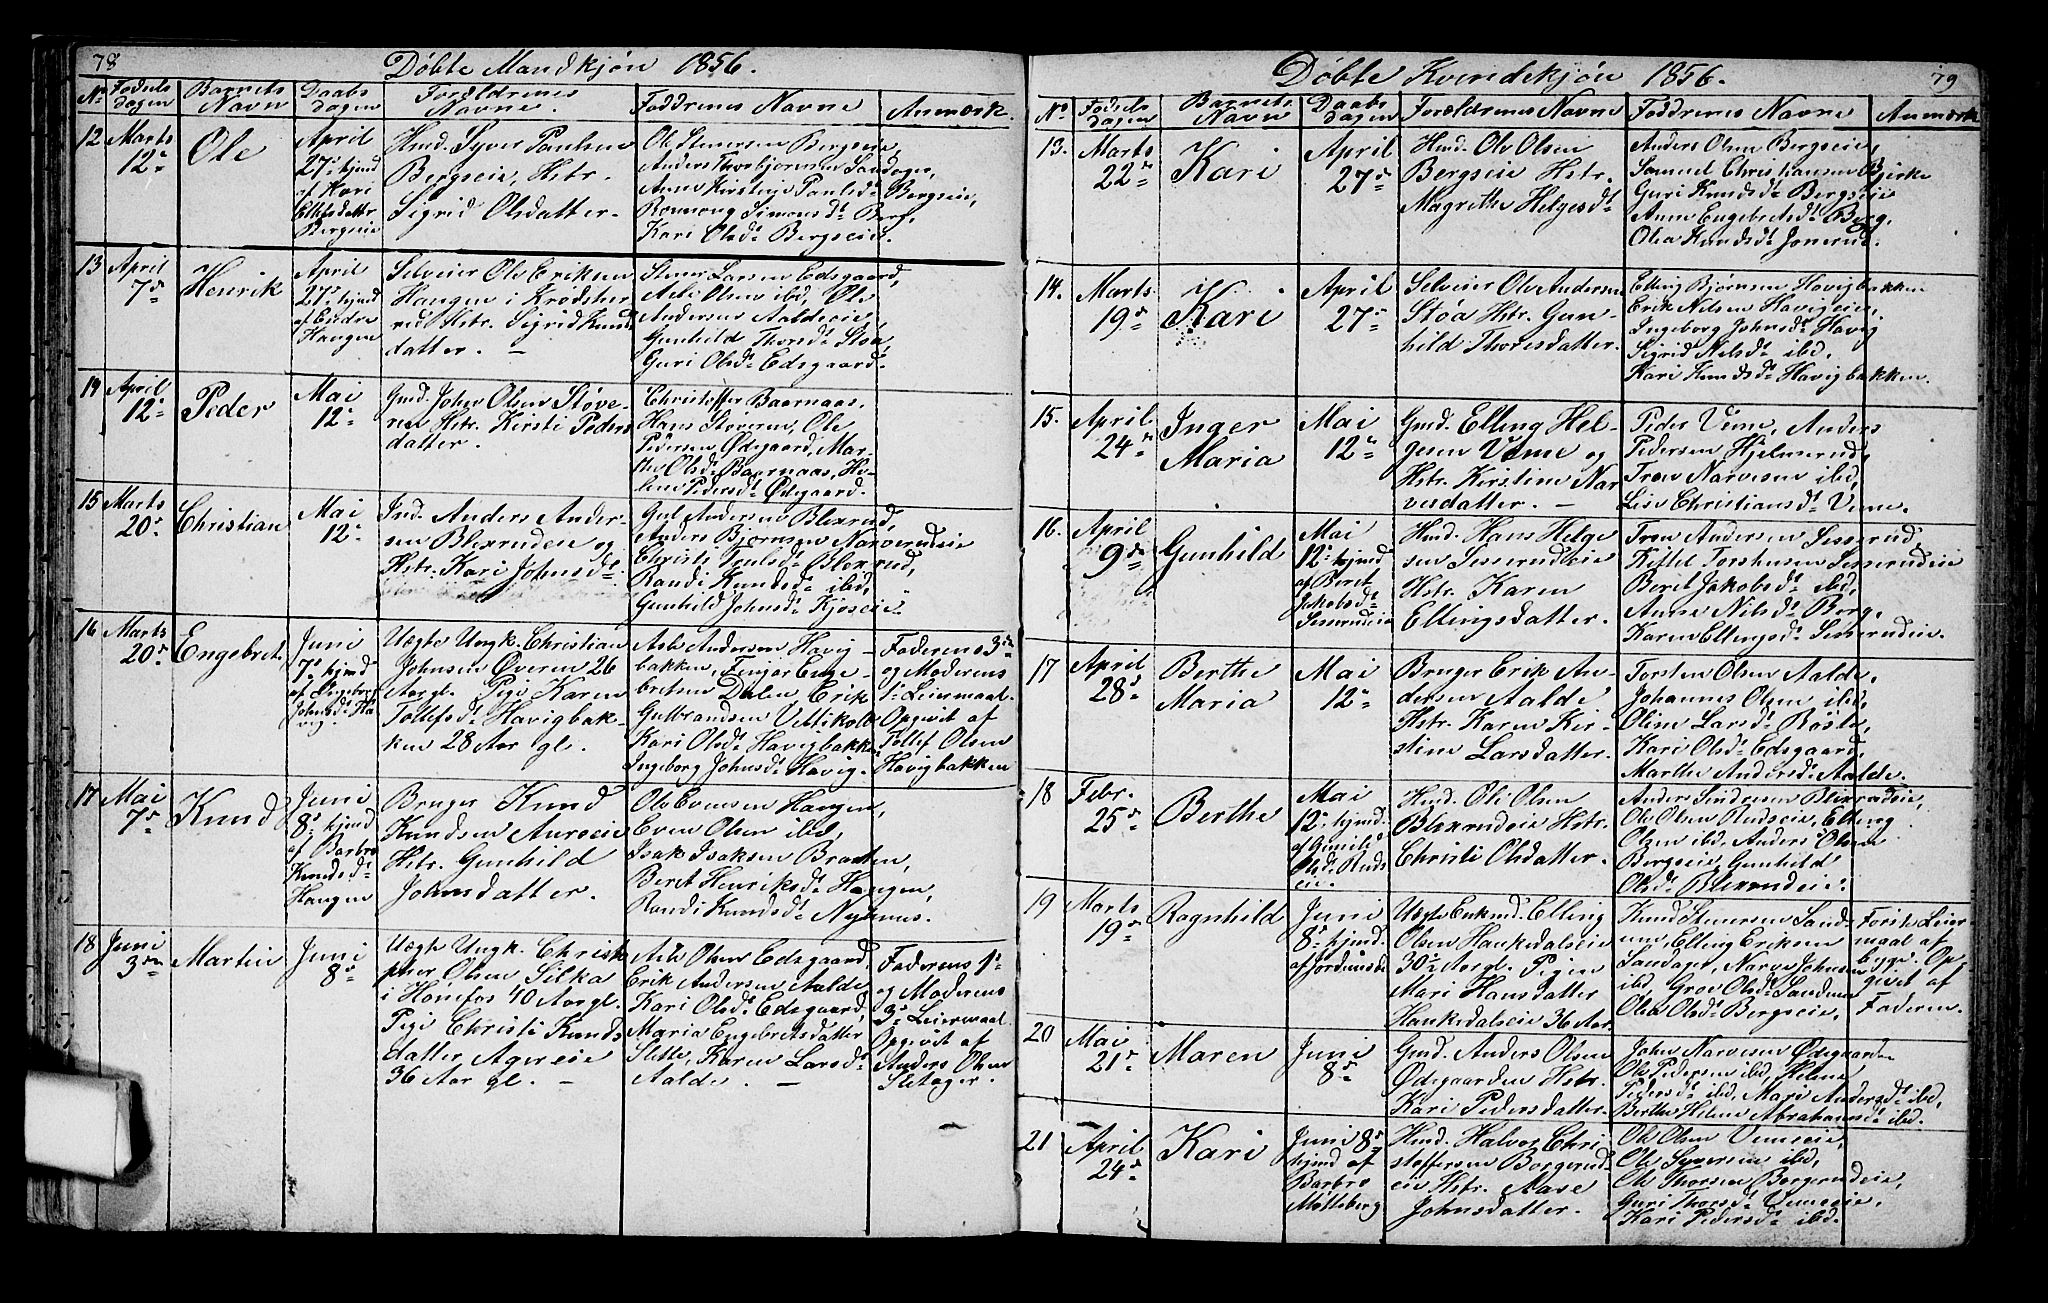 78
Døbte Mandkjøn 1856.
No Fødsels dagen
Barnets Navn
Daabs dagen
Forældrenes Navne.
Faddrenes Navne
Anmærk.
12 Marts 12te
Ole
April
27de hjmd
af Kari
Bergseie
Hmd. Syver Paulsen
Bergseie, Hstr.
Sigrid Olsdatter.
Ole Steners en Bergseie,
Anders Thorbjørnsen Sandager,
Anne Kirstine Paulsdt Bergseie,
Ronnoug Simonsdt Berg,
Kari Olsdt Bergseie.
13 April 7de
Henrik
April
27de hjmd
af Endre
Haugen
Selveier Ole Eriksen
Haugen i Krødshe
rud Hstr. Sigrid Knuds
datter. —
Stener Larsen Edsgaard,
Asle Olsen ibd, Ole
Andersen Aaldeeie,
Gunhild Thorsdt Støa,
Guri Olsdt Edsgaard.
14 April 12te
Peder
Mai
12te
Gmd. Johan Olsen Støve-
ren Hstr. Kirsti Peders
datter.
Christoffer Baarnaas,
Hans Støveren, Ole
Pedersen Ødegaard, Mar-
the Olsdt Baarnaas, He-
lene Pedersdt Ødegaard.
15 Marts 20de
Christian
Mai
12te
Ind. Anders Ander-
sen Blexrudeie og
Hstr. Kari Johnsdt
Gul Andersen Blexrud,
Anders Bjørnsen Narverudeie
Christi Trulsdt Blexrud,
Randi Knudsdt ibd,
Gunhild Johnsdt Kjøseie
16 Marts 20de
Engebret
Juni
7de hjmd
af Ingeborg
Johnsdt Ha
vig.
Uægte Ungk. Christian
Johnsen Øveren 26
Aar gl. Pige Karen
Tollefsdt Havigbak-
ken 28 Aar gl.
Asle Andersen Havig
bakken, Fingar Enge
bretsen Dalen, Erik
Gulbrandsen Vettekold
Kari Olsdt Havigbakken
Ingeborg Johnsdt Havig.
Faderens 3die
og Moderens
1ste Leiermaal.
Opgivet af
Tollef Olsen
Havigbakken
17 Mai 7de
Knud
Juni
8de hjmd
af Barbro
Knudsdt
Haugen
Bruger Knud
Knudsen Aurseie
Hstr. Gunhild
Johnsdatter.
Ole Evensen Haugen,
Even Olsen ibd,
Isak Isaksen Braaten,
Beret Henriksdt Haugen,
Randi Knudsdt Nyhuus.
18 Juni 3die
Martin
Juni
8de
Uægte Ungk. Christ
pher, Olsen Silka
i Hønefos 40 Aar gl.
Pige Christi Knuds
datter Agereie
36 Aar gl. —
Asle Olsen Edsgaard,
Erik Andersen Aalde
Kari Olsdt Edsgaard,
Maria Engebretsdatter
Slette, Karen Larsdt
Aalde. —
Faderens 1ste
og Moderens
3de Leiermaal
Opgivet af
Anders Olsen
Sletager.
79
Døbte Kvindekjøn 1856.
No Fødsels dagen
Barnets Navn
Daabs dagen
Forældrenes Navne
Faddrenes Navne
Anmærk
13. Marts 22de
Kari
April
27de
Hmd. Ole Olsen
Bergseie Hstr.
Magrethe Helgesdt
Anders Olsen Bergseie,
Samuel Christiansen Bjerke
Guri Knudsdt Bergseie
Anne Engebretsdt Berg,
Olea Knudsdt Jonerud.
14. Marts 19de
Kari
April
27de
Selveier Ole Andersen
Støa Hstr. Gun-
hild Thoresdatter.
Elling Bjørnsen Havigbakken
Erik Nilsen Havigeie,
Ingeborg Johnsdt Havig
Sigrid Nilsdt ibd,
Kari Knudsdt Havigbakken.
15. April 24de
Inger
Maria
Mai
12te
Gmd. Elling Hel-
gesen Veme og
Hstr. Kirstine Nar
vesdatter. —
Peder Veme, Anders
Pedersen Hjelmerud,
Tron Narvesen ibd,
Lise Christiansdt Veme.
16. April 9de
Gunhild
Mai
12te hjmd
af Beret
Jakobsdt
Sesserudeie
Hmd. Hans Helge
sen Sesserudeie
Hstr. Karen
Ellingsdatter.
Tron Andersen Sesserud,
Kittel Torstensen Sesserudeie
Beret Jakobsdt ibd,
Anne Nilsdt Berg,
Karen Ellingsdt Sesserudeie.
17 April 28de
Berthe
Maria
Mai
12te
Bruger Erik An-
dersen Aalde
Hstr. Karen Kir-
stine Larsdatter.
Torsten Olsen Aalde,
Johannes Olsen ibd,
Oline Larsdt Røste,
Kari Olsdt Edsgaard,
Marthe Andersdt Aalde.
18 Febr. 25de
Berthe
Mai
12te hjmd.
af Gunild
Olsdt Ruds
eie.
Hmd. Ole Olsen
Blexrudeie Hstr.
Christi Olsdatter.
Anders Sindresen Blexrudeie,
Ole Olsen Rudseie, Elling
Olsen ibd, Anders Olsen
Bergseie, Gunhild
Olsdt Blexrudeie.
19 Marts 19de
Ragnhild
Juni
8de hjmd.
af Jordemod
Uægte Enkmd. Elling
Olsen Hankedalseie
30½ Aar gl. Pigen
Mari Hansdatter
Hankedalseie 36 Aar.
Knud Stenersen Sand
um, Elling Eriksen
Sandager, Narve Johnsen
ibd, Groe Olsdt Sandum
Olea Olsdt Bergseie,
Første Leier
maal af
begge. Op-
givet af
Faderen.
20 Mai 21de
Maren
Juni
8de
Gmd. Anders Olsen
Ødegaarden Hstr.
Kari Pedersdatter.
John Narvesen Ødegaarden
Ole Pedersen ibd, Helene
Pedersdt ibd, Mari Andersdt ibd,
Berthe Helene Abrahamsdt ibd.
21 April 24de
Kari
Juni 8de
hjmd af
Barbro
Møtteberg
Hmd. Halvor Chri
stoffersen Borgerud-
eie Hstr. Aase
Johnsdatter.
Ole Olsen Vemeeie,
Ole Syversen ibd,
Ole Thorsen Borgerudeie,
Guri Thorsdt Vemeeie,
Kari Pedersdt ibd.